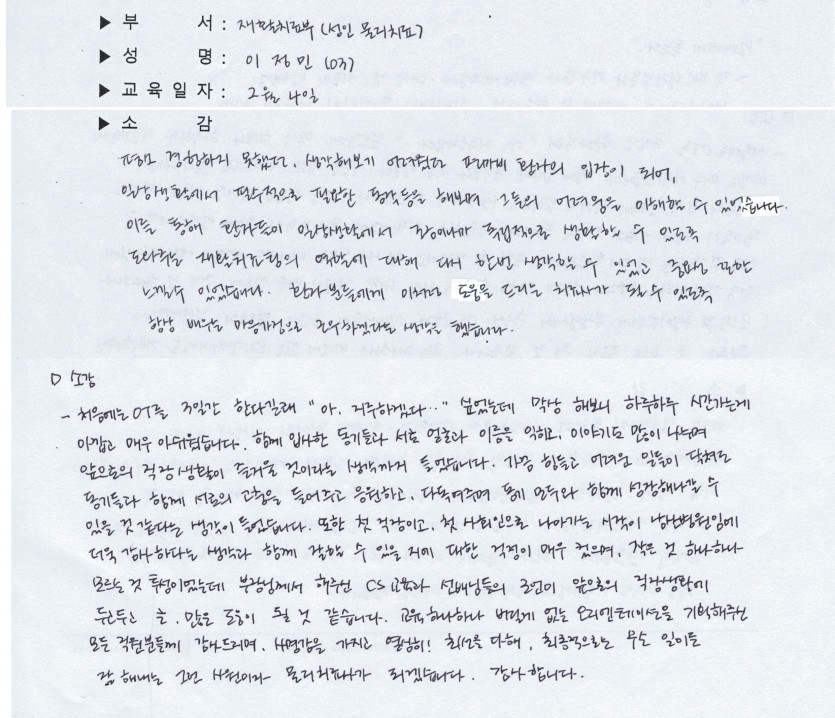 ▶ 부 서 : 재활치료부 (성인 물리치료)
▶ 성 명 : 이정민 (037)
▶ 교육일자 : 2월 4일
▶ 소 감
평소 경험하지 못했던, 생각해보기 어려웠던 편마비 환자의 입장이 되어,
일상생활에서 필수적으로 필요한 동작들을 해보며 그들의 어려움을 이해할 수 있었습니다.
이를 통해 환자들이 일상생활에서 조금이나마 독립적으로 생활할 수 있도록
도와주는 재활치료팀의 역할에 대해 다시 한번 생각할 수 있었고 중요성 또한
느낄 수 있었습니다. 환자분들에게 이러한 도움을 드리는 치료사가 될 수 있도록
항상 배우는 마음가짐으로 근무하겠다는 생각을 했습니다.
□ 소감
- 처음에는 OT를 3일간 한다길래 "아, 지루하겠다..." 싶었는데 막상 해보니 하루하루 시간가는게
아깝고 매우 아쉬웠습니다. 함께 입사한 동기들과 서로 얼굴과 이름을 익히고, 이야기도 많이 나누며
앞으로의 직장생활이 즐거울 것이라는 생각까지 들었습니다. 가끔 힘들고 어려운 일들이 닥쳐도
동기들과 함께 서로의 고충을 들어주고 응원하고, 다독여주며 동기 모두와 함께 성장해나갈 수
있을 것 같다는 생각이 들었습니다. 또한 첫 직장이고, 첫 사회인으로 나아가는 시작이 남산병원임에
더욱 감사하다는 생각과 함께 잘할 수 있을지에 대한 걱정이 매우 컸으며, 작은 것 하나하나
모르는 것 투성이었는데 부장님께서 해주신 CS교육과 선배님들의 조언이 앞으로의 직장생활에
두고두고 큰, 많은 도움이 될 것 같습니다. 교육 하나하나 버릴게 없는 오리엔테이션을 기획해주신
모든 직원분들께 감사드리며, 사명감을 가지고 열심히! 최선을 다해, 최종적으로는 무슨 일이든
잘 해내는 그런 사원이자 물리치료사가 되겠습니다. 감사합니다.